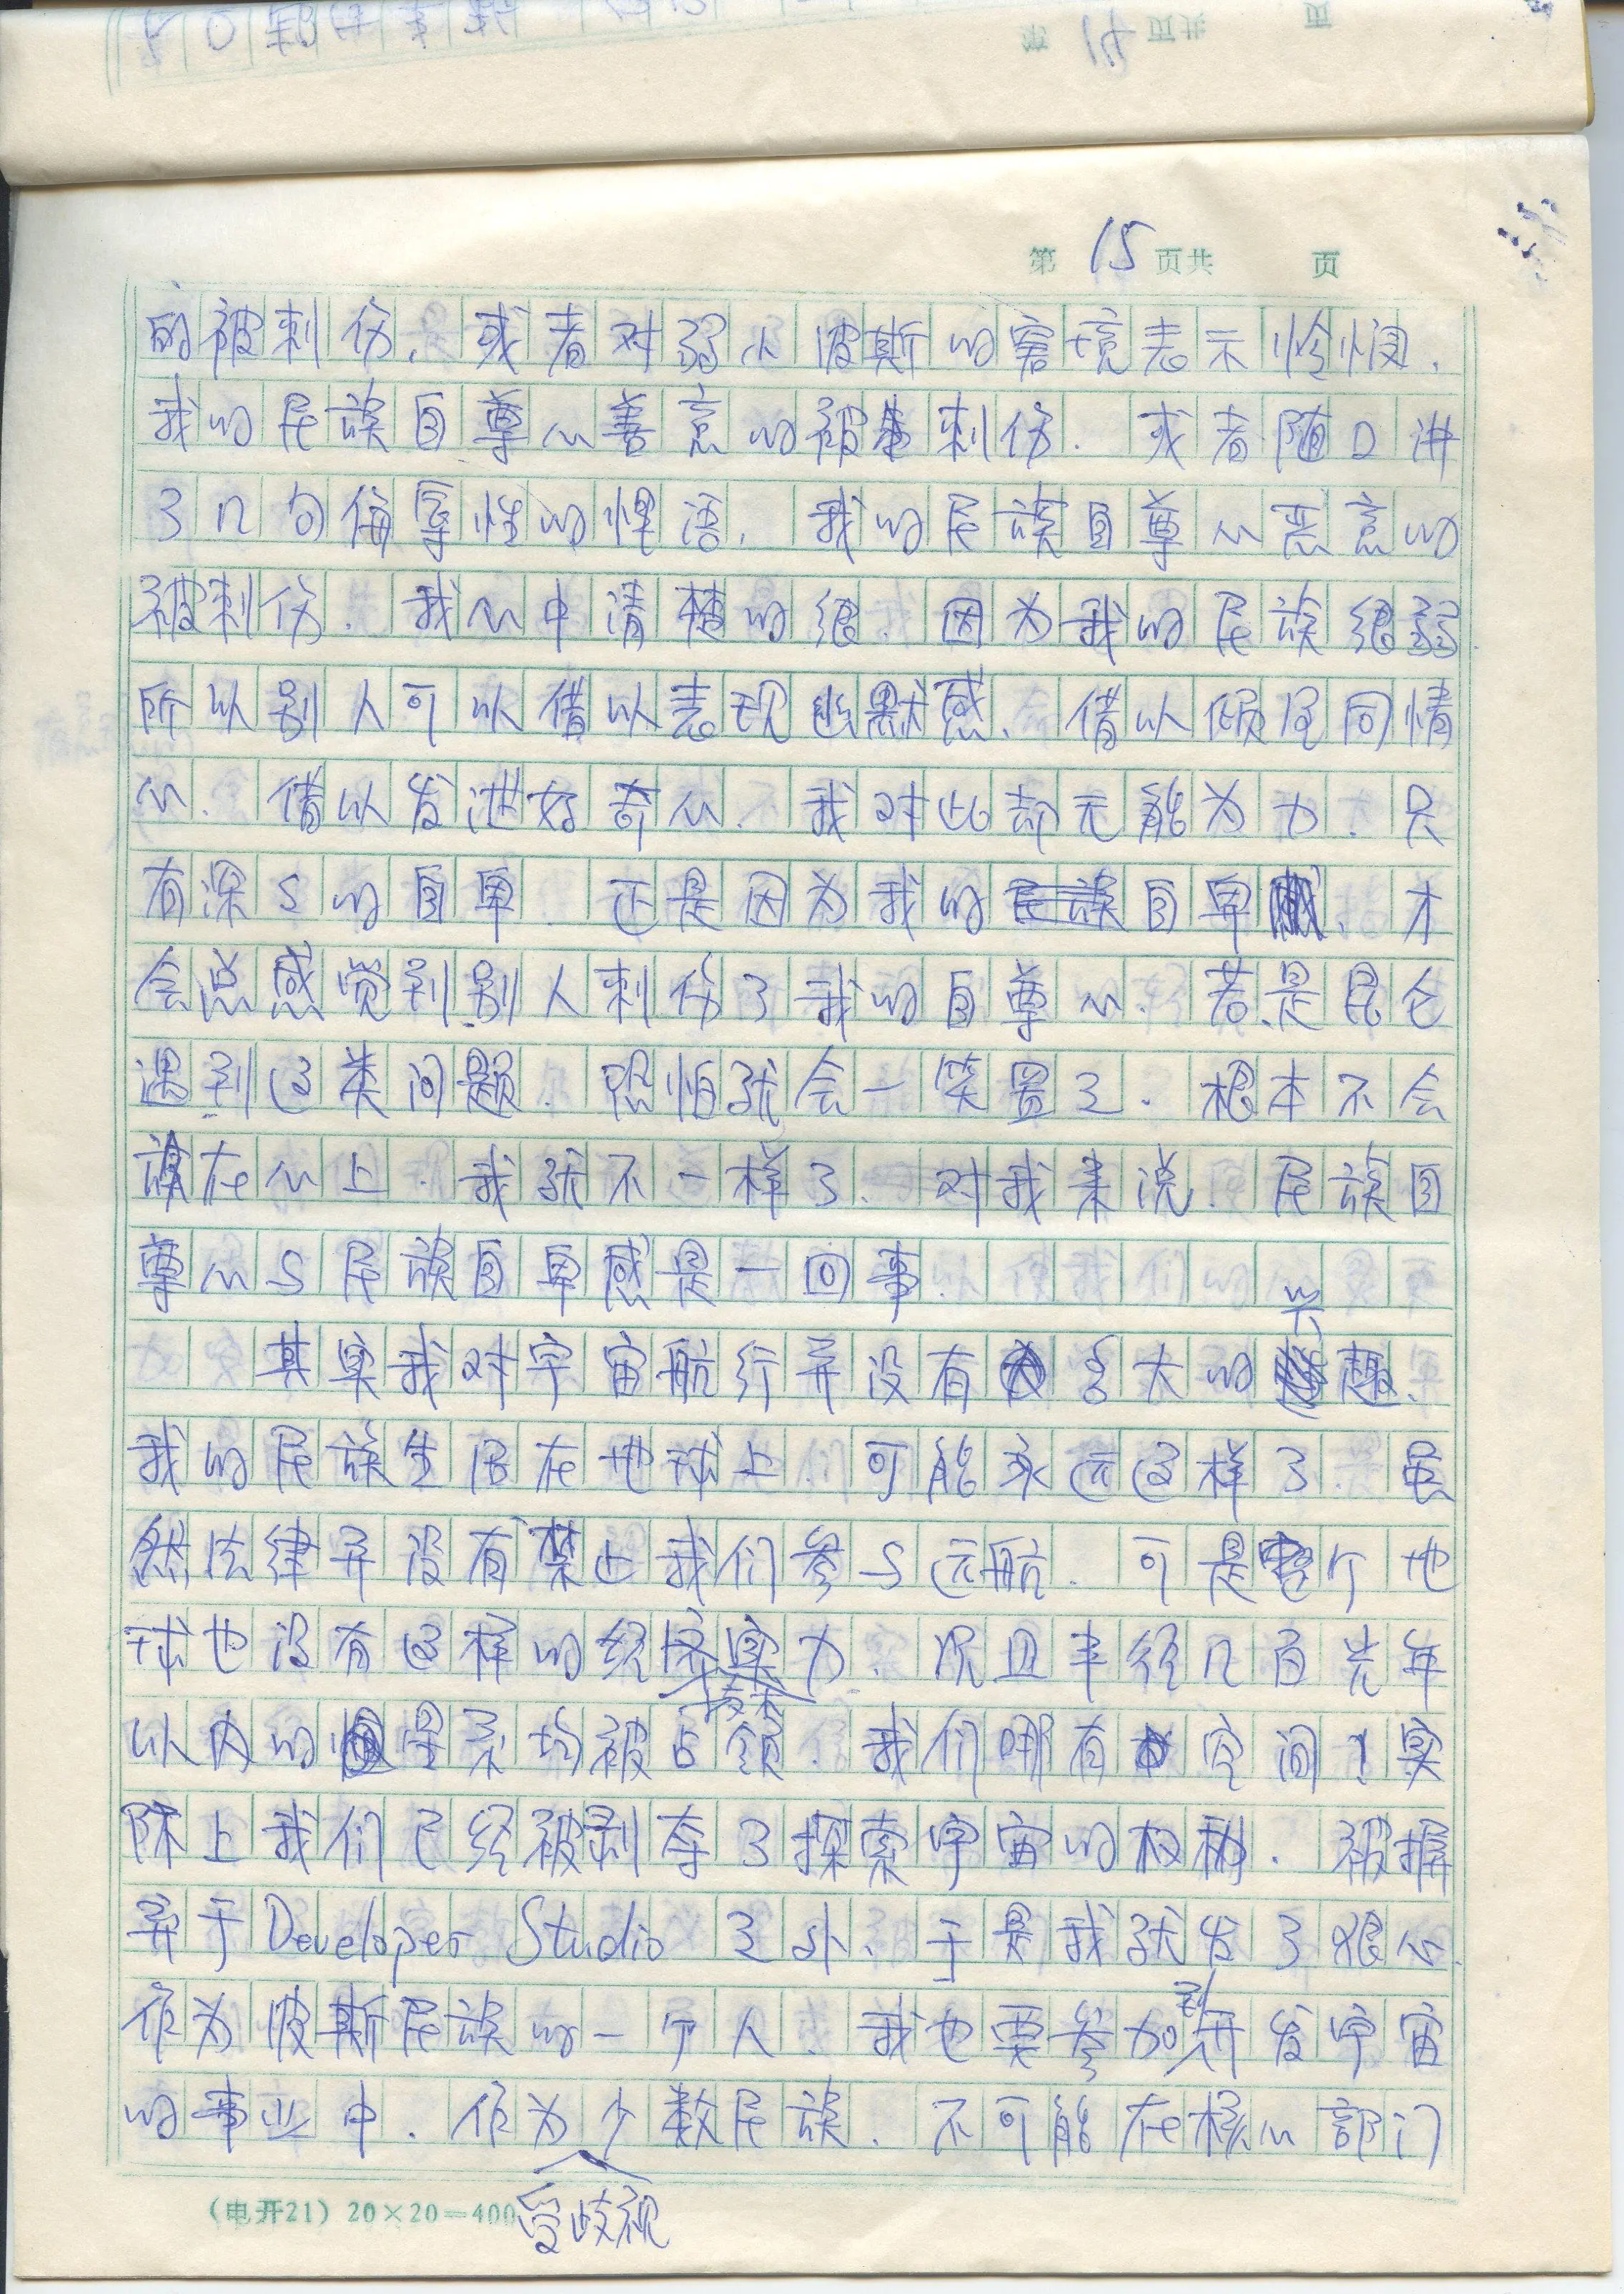 第 15 页共 页
的被刺伤. 或者对弱小波斯的窘境表示怜悯.
我的民族自尊心善意的被刺伤. 或者随口讲
了几句侮辱性的俚语. 我的民族自尊心恶意的
被刺伤. 我心中清楚的很. 因为我的民族很弱.
所以别人可以借以表现幽默感、借以倾泻同情
心. 借以发泄好奇心. 我对此却无能为力. 只
有深深的自卑. 还是因为我的自卑、才
会总感觉到别人刺伤了我的自尊心. 若是昆仑
遇到这类问题. 恐怕就会一笑置之. 根本不会
放在心上. 我就不一样了. 对我来说. 民族自
尊心与民族自卑感是一回事.
其实我对宇宙航行并没有多大的兴趣、
我的民族生活在地球上. 可能永远这样了. 虽
然法律并没有禁止我们参与远航. 可是整个地
球也没有这样的经济实力. 况且半径几百光年
以内的星系均被占领. 我们哪有空间! 实
际上我们已经被剥夺了探索宇宙的权利. 被摒
弃于Developer Studio 之外、于是我就发了狠心.
作为波斯民族的一个人、我也要参加到开发宇宙
的事业中. 作为受歧视少数民族. 不可能在核心部门
(电开21) 20×20=400